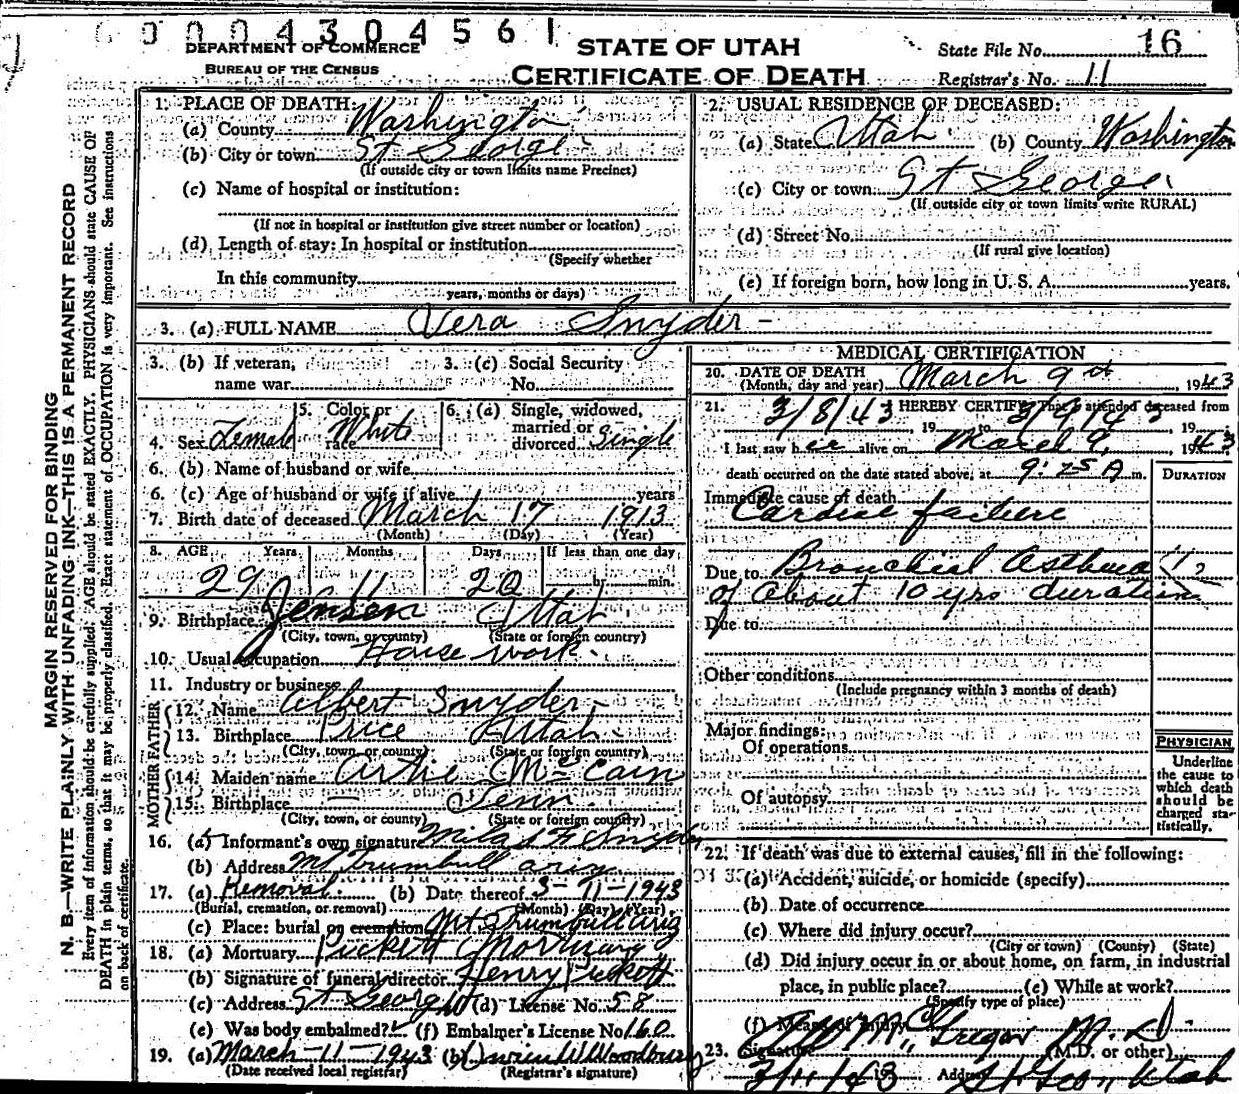 0004304561
DEPARTMENT OF COMMERCE
BUREAU OF THE CENSUS
STATE OF UTAH
CERTIFICATE OF DEATH
State File No. 16
Registrar's No. 11
MARGIN RESERVED FOR BINDING
N. B.—WRITE PLAINLY WITH UNFADING INK—THIS IS A PERMANENT RECORD
Every item of information should be carefully supplied; AGE should be stated EXACTLY. PHYSICIANS should state CAUSE OF
DEATH in plain terms, so that it may be properly classified. Exact statement of OCCUPATION is very important. See instructions
on back of certificate.
1. PLACE OF DEATH:
(a) County Washington
(b) City or town St George
(If outside city or town limits name Precinct)
(c) Name of hospital or institution:
(If not in hospital or institution give street number or location)
(d) Length of stay: In hospital or institution
(Specify whether
In this community
years, months or days)
2. USUAL RESIDENCE OF DECEASED:
(a) State Utah (b) County Washington
(c) City or town St George
(If outside city or town limits write RURAL)
(d) Street No.
(If rural give location)
(e) If foreign born, how long in U. S. A. years.
3. (a) FULL NAME Vera Snyder
3. (b) If veteran, name war
3. (c) Social Security No.
4. Sex Female
5. Color or race White
6. (a) Single, widowed, married or divorced Single
6. (b) Name of husband or wife
6. (c) Age of husband or wife if alive years
7. Birth date of deceased March 17 1913
(Month) (Day) (Year)
8. AGE Years Months Days If less than one day
29 11 20 hr. min.
9. Birthplace Jensen Utah
(City, town, or county) (State or foreign country)
10. Usual occupation House work
11. Industry or business
FATHER
12. Name Albert Snyder
13. Birthplace Price Utah
(City, town, or county) (State or foreign country)
MOTHER
14. Maiden name Artie McCain
15. Birthplace — Tenn.
(City, town, or county) (State or foreign country)
16. (a) Informant's own signature Milas F Snyder
(b) Address Mt Trumbull Ariz
17. (a) Removal (b) Date thereof 3-11-1943
(Burial, cremation, or removal) (Month) (Day) (Year)
(c) Place: burial or cremation Mt. Trumbull Ariz
18. (a) Mortuary Pickett Mortuary
(b) Signature of funeral director Henry Pickett
(c) Address St George (d) License No. 58
(e) Was body embalmed? (f) Embalmer's License No. 160
19. (a) March-11-1943 (b) Woodbury
(Date received local registrar) (Registrar's signature)
MEDICAL CERTIFICATION
20. DATE OF DEATH
(Month, day and year) March 9, 1943
21. I HEREBY CERTIFY That I attended deceased from
3/8/43, 19 to 3/9/43, 19
I last saw her alive on March 9, 1943
death occurred on the date stated above, at 9:25 A m.
DURATION
Immediate cause of death
Cardiac failure
Due to Bronchial Asthma
of About 10 yrs duration
Due to
Other conditions
(Include pregnancy within 3 months of death)
Major findings:
Of operations
Of autopsy
PHYSICIAN
Underline
the cause to
which death
should be
charged sta-
tistically.
22. If death was due to external causes, fill in the following:
(a) Accident, suicide, or homicide (specify)
(b) Date of occurrence
(c) Where did injury occur?
(City or town) (County) (State)
(d) Did injury occur in or about home, on farm, in industrial
place, in public place? (e) While at work?
(Specify type of place)
(f) Means of injury
23. Signature McGregor M. D.
(M.D. or other)
3/11/43 19 Address St Geo, Utah